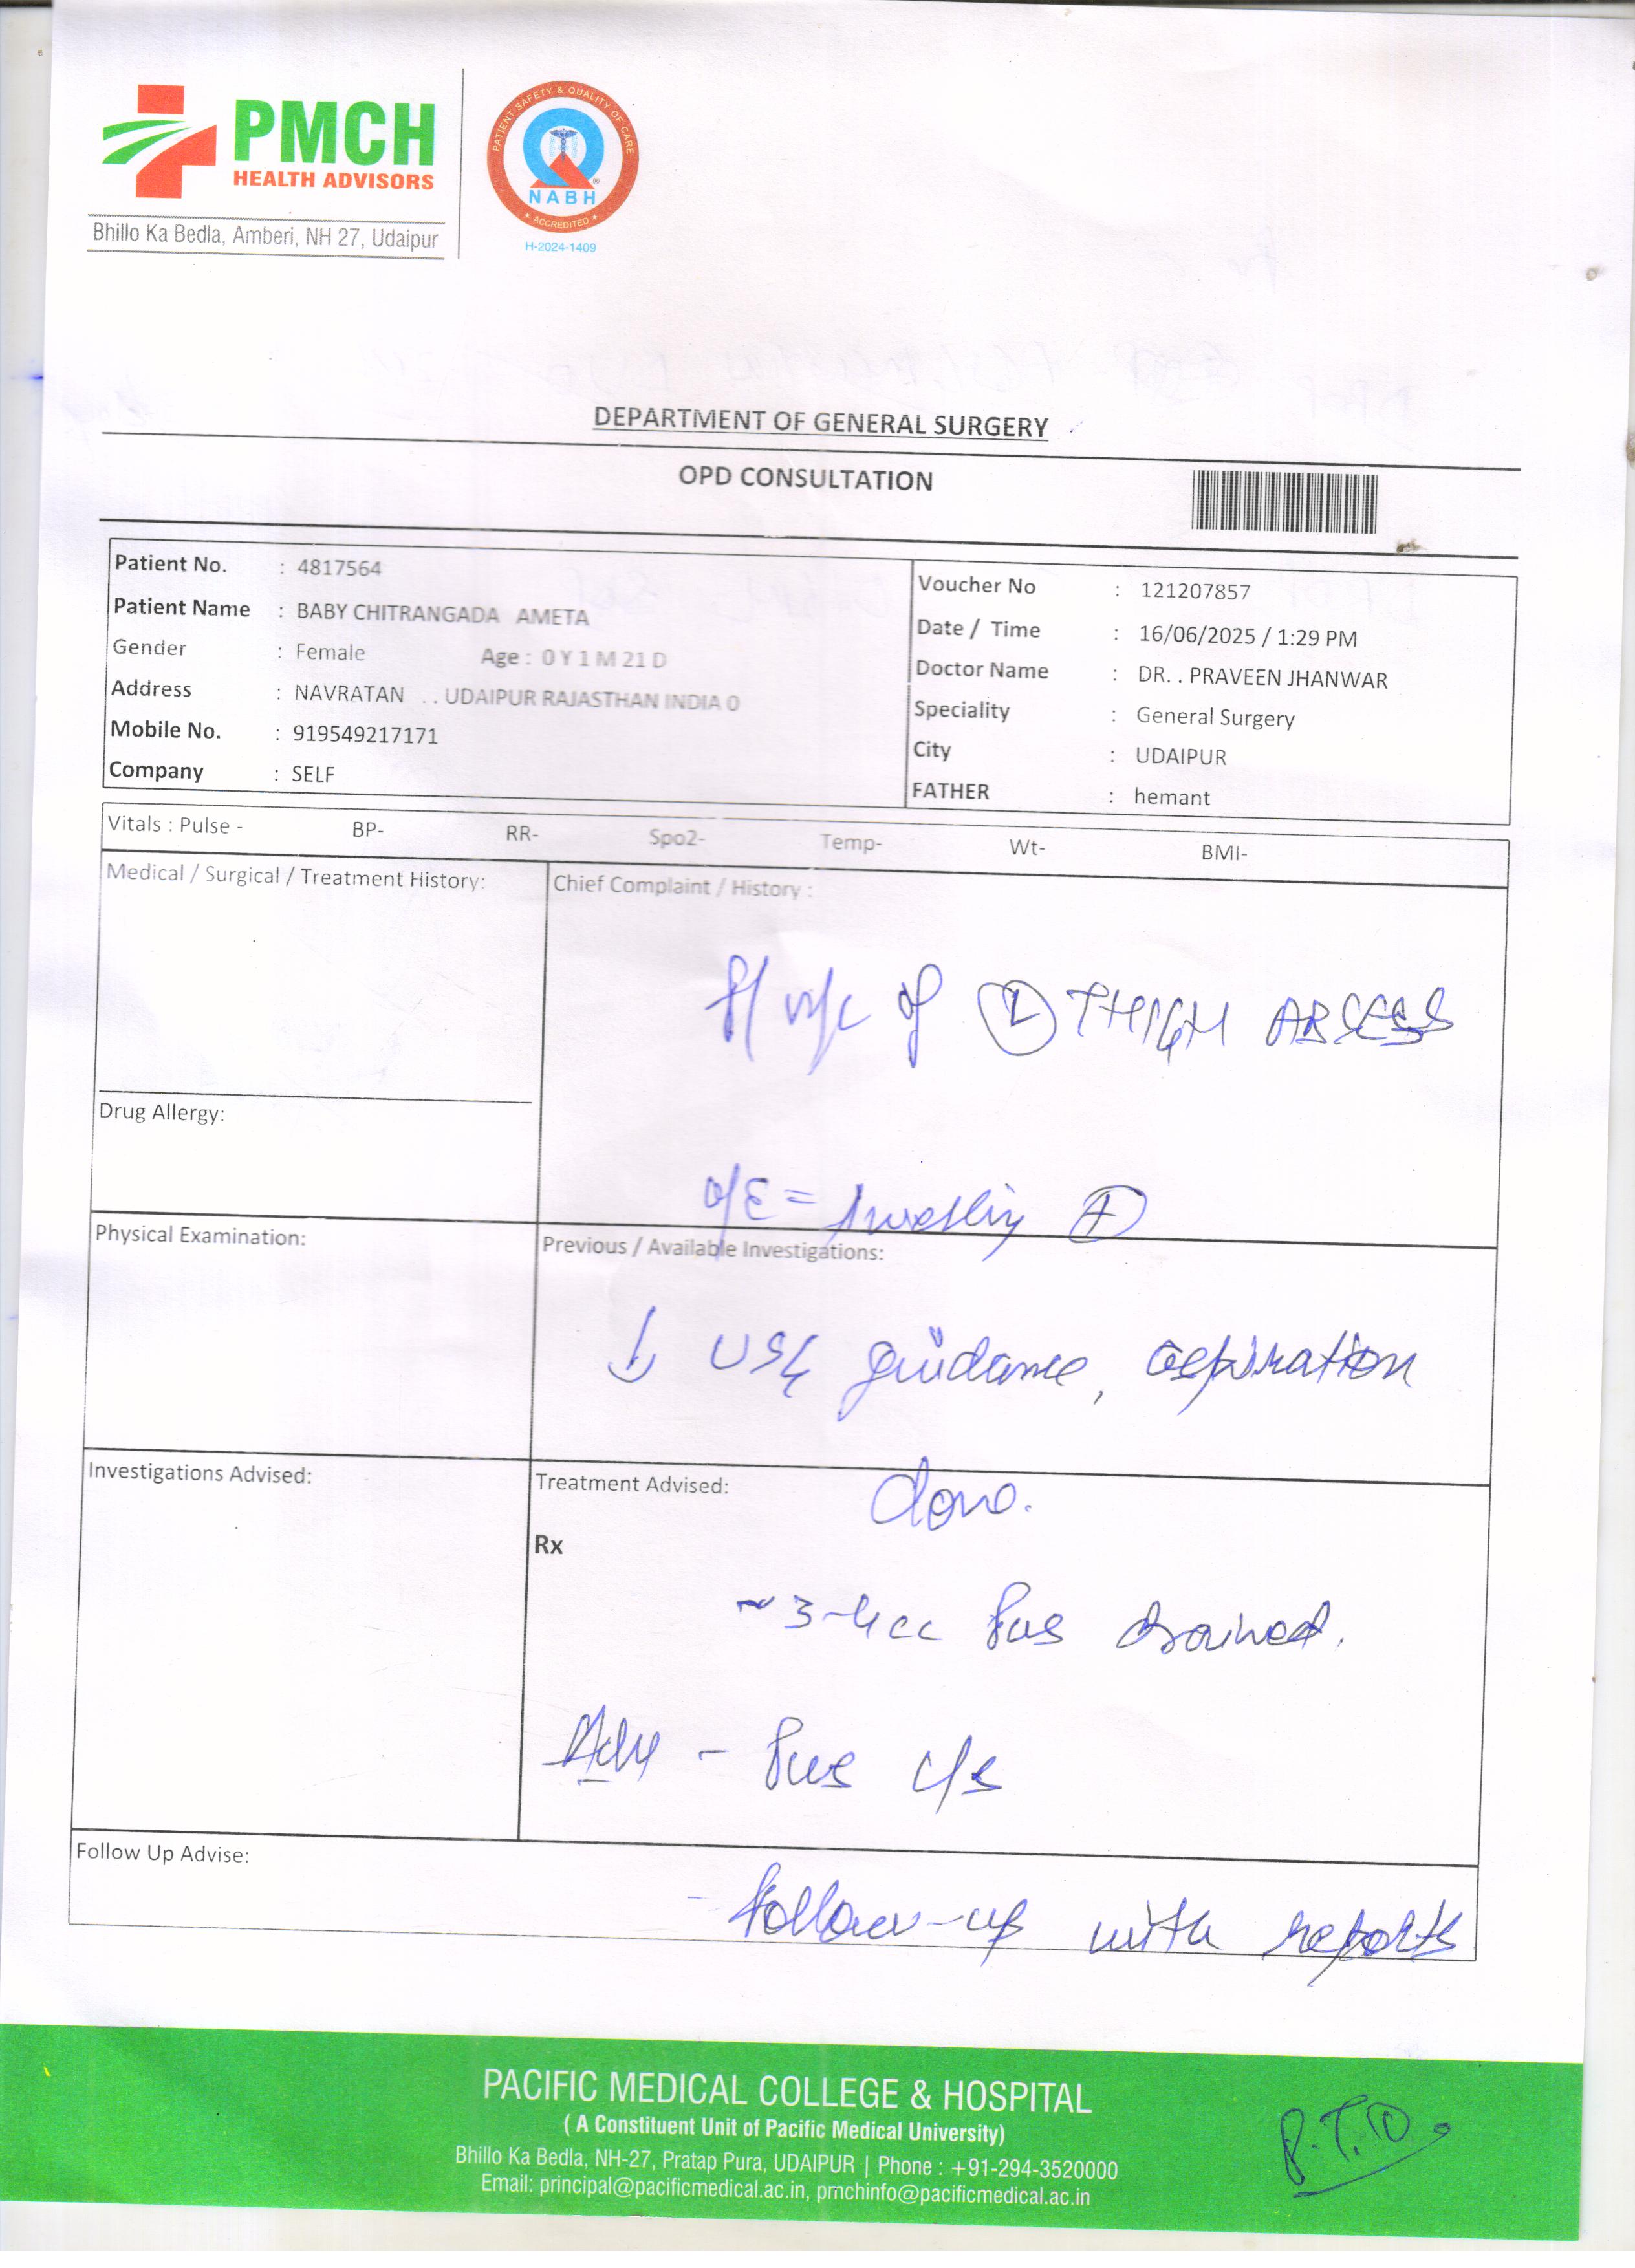 PMCH
HEALTH ADVISORS
Bhillo Ka Bedla, Amberi, NH 27, Udaipur
PATIENT SAFETY & QUALITY OF CARE
NABH
ACCREDITED
H-2024-1409
DEPARTMENT OF GENERAL SURGERY
OPD CONSULTATION
Patient No. : 4817564
Patient Name : BABY CHITRANGADA AMETA
Gender : Female Age : 0 Y 1 M 21 D
Address : NAVRATAN . . UDAIPUR RAJASTHAN INDIA 0
Mobile No. : 919549217171
Company : SELF
Voucher No : 121207857
Date / Time : 16/06/2025 / 1:29 PM
Doctor Name : DR. . PRAVEEN JHANWAR
Speciality : General Surgery
City : UDAIPUR
FATHER : hemant
Vitals : Pulse - BP- RR- Spo2- Temp- Wt- BMI-
Medical / Surgical / Treatment History:
Chief Complaint / History :
of (L) THIGH ABSCESS
Drug Allergy:
O/E = swelling (+)
Physical Examination:
Previous / Available Investigations:
↓ USG guidance, aspiration
Investigations Advised:
Treatment Advised:
done.
Rx
~ 3-4cc Pus drained.
Adv - Pus c/s
Follow Up Advise:
- follow-up with reports
PACIFIC MEDICAL COLLEGE & HOSPITAL
( A Constituent Unit of Pacific Medical University)
Bhillo Ka Bedla, NH-27, Pratap Pura, UDAIPUR | Phone : +91-294-3520000
Email: principal@pacificmedical.ac.in, pmchinfo@pacificmedical.ac.in
P.T.O.